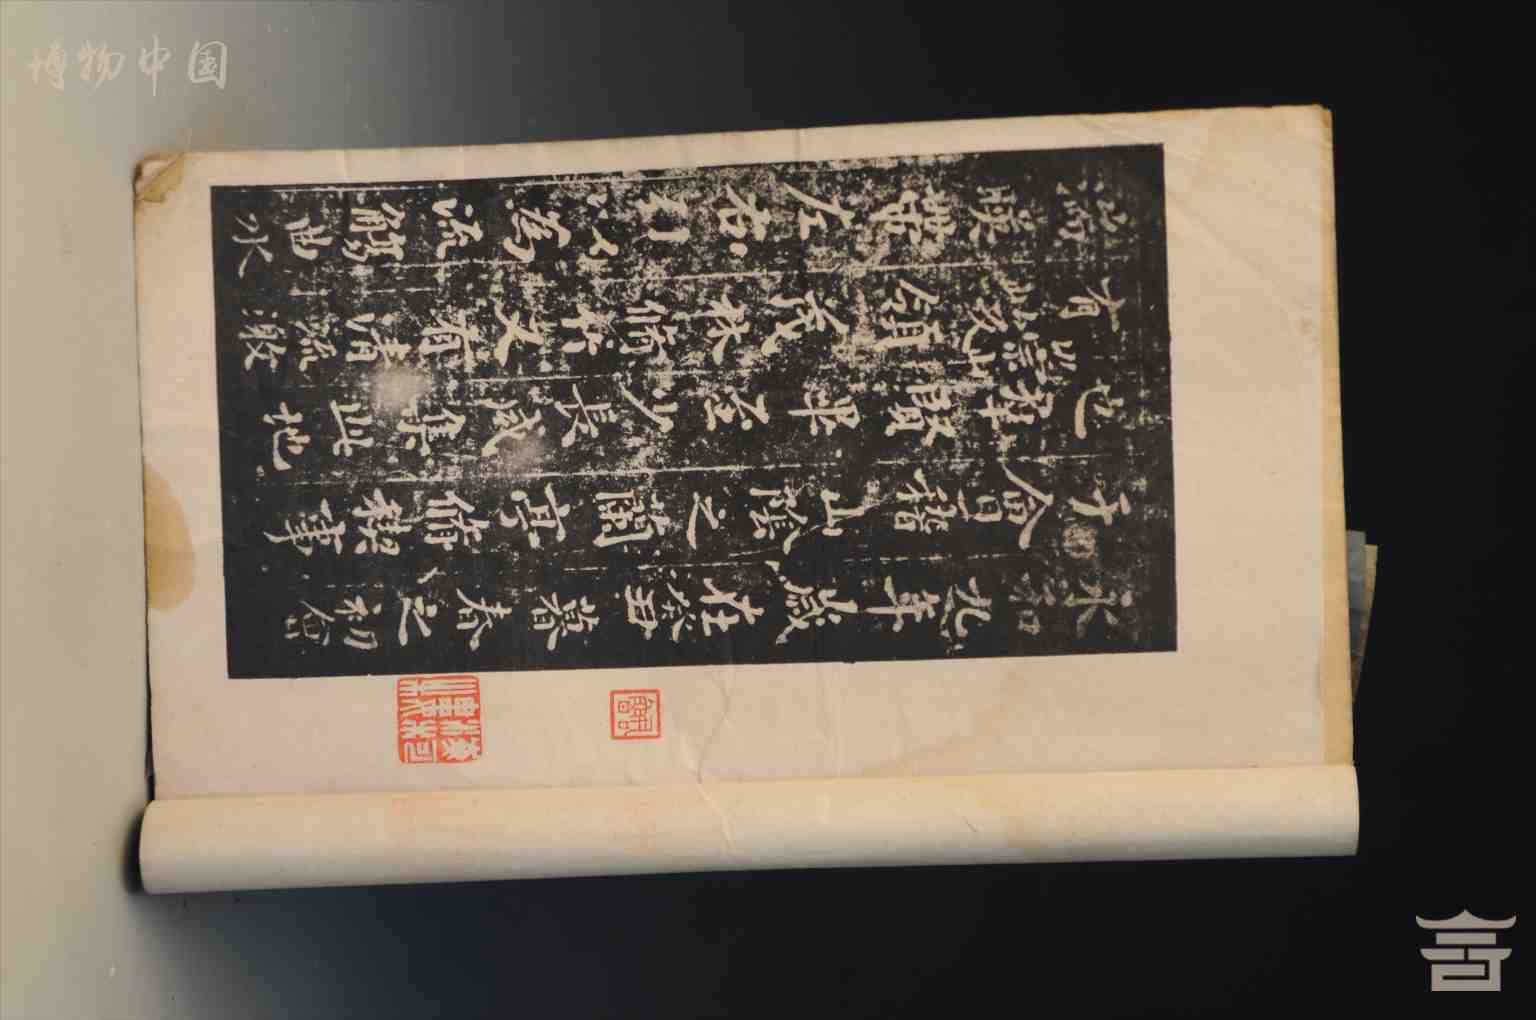 博物中国
永和九年歲在癸丑暮春之初會
于會稽山陰之蘭亭脩禊事
也羣賢畢至少長咸集此地
有崇山峻領茂林脩竹又有清流激
湍暎帶左右引以為流觴曲水